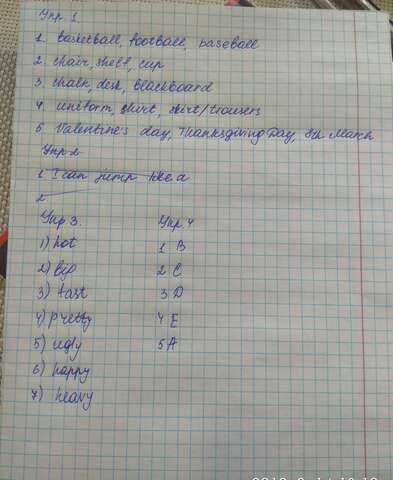 Упр 1.
1. basketball, football, baseball
2. chair, shelf, cup
3. chalk, desk, blackboard
4. uniform, shirt, skirt/trousers
5. Valentine's day, Thanksgiving Day, 8th March
Упр 2
1. I can jump like a
2
Упр 3. Упр. 4
1) hot 1 B
2) big 2 C
3) fast 3 D
4) pretty 4 E
5) ugly 5 A
6) happy
7) heavy